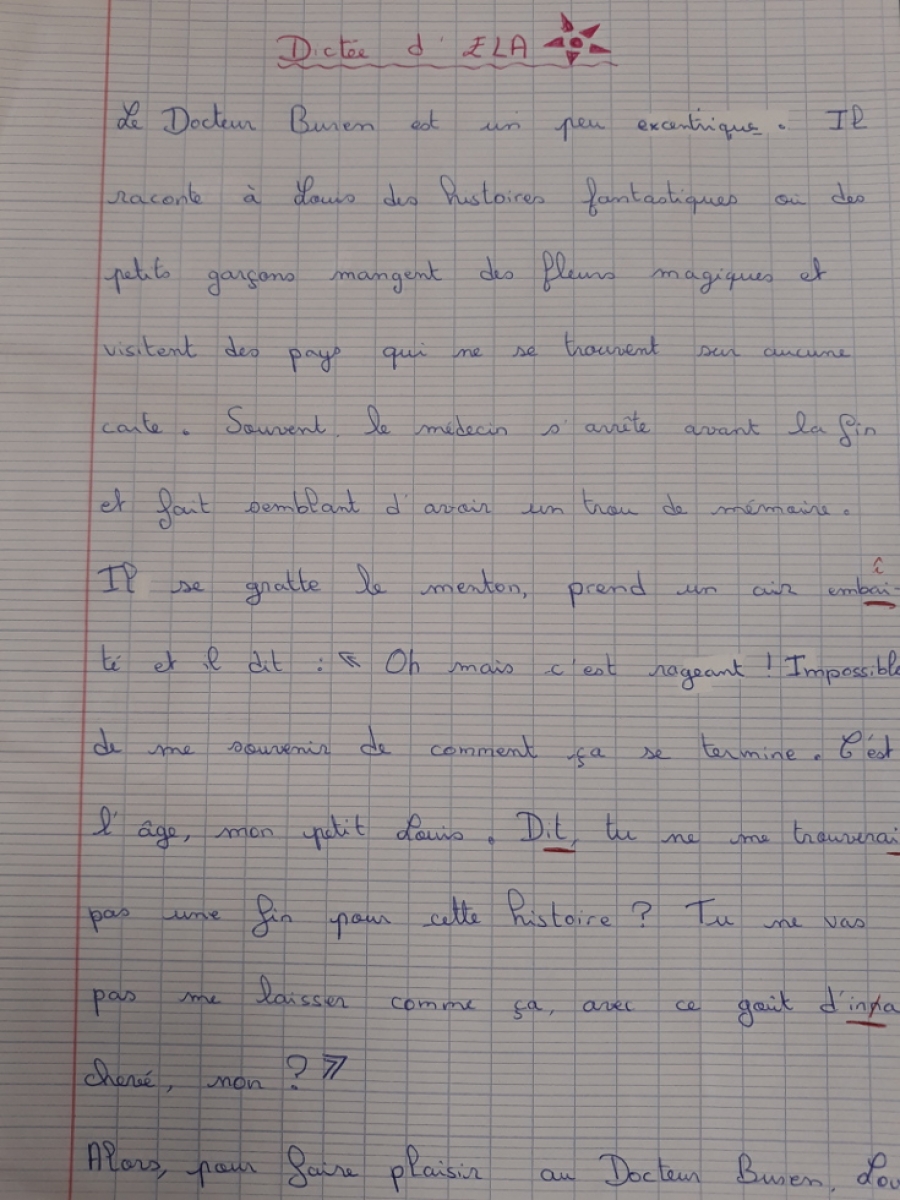 Dictée d'ELA
Le Docteur Buren est un peu excentrique. Il
raconte à Louis des histoires fantastiques où des
petits garçons mangent des fleurs magiques et
visitent des pays qui ne se trouvent sur aucune
carte. Souvent le médecin s'arrête avant la fin
et fait semblant d'avoir un trou de mémoire.
Il se gratte le menton, prend un air embai-
î
té et il dit : « Oh mais c'est rageant ! Impossible
de me souvenir de comment ça se termine. C'est
l'âge, mon petit Louis. Dit, tu ne me trouverai
pas une fin pour cette histoire ? Tu ne vas
pas me laisser comme ça, avec ce goût d'inna
chevé, non ? »
Alors, pour faire plaisir au Docteur Buren, Lou